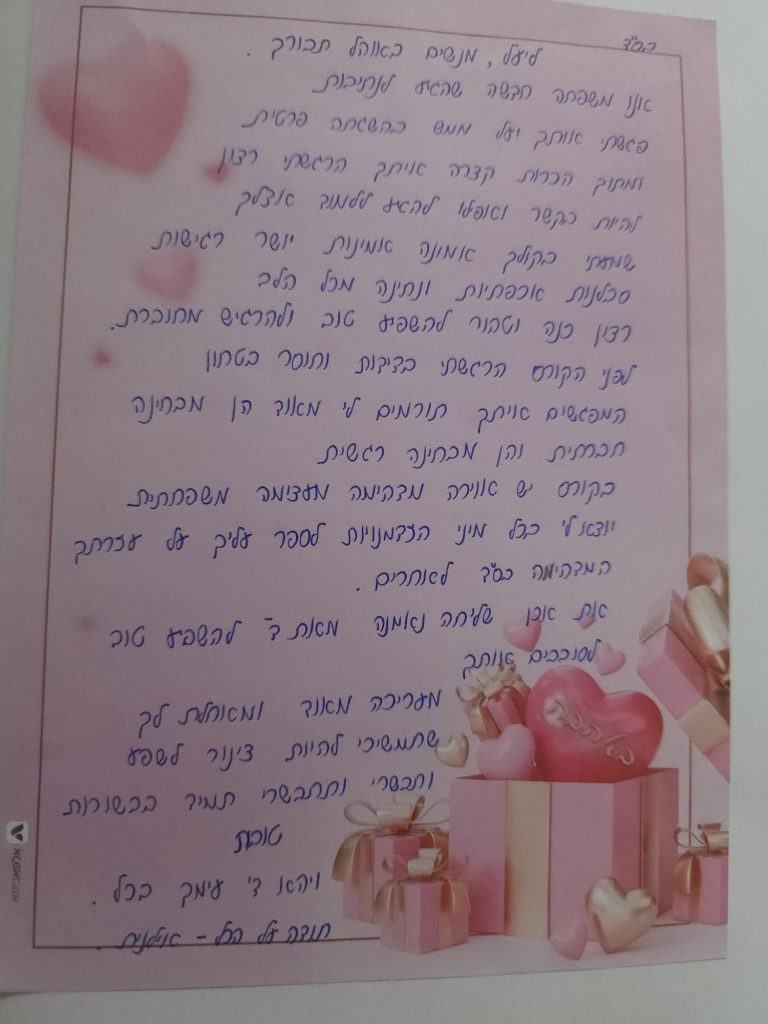 בס"ד
ליעל, מנשים באוהל תבורך.
אנו משפחה חדשה שהגיע לנתיבות
פגשתי אותך יעל ממש בהשגחה פרטית
ומתוך הכרות קצרה אויתך הרגשתי רצון
להיות בקשר ואפילו להגיע ללמוד אצלך
שמעתי בקולך אמונה אמינות יושר רגישות
סבלנות אכפתיות ונתינה מכל הלב
רצון כנה וטהור להשפיע טוב ולהרגיש מחוברת.
לפני הקורס הרגשתי בדידות וחוסר בטחון
המפגשים אויתך תורמים לי מאוד הן מבחינה
חברתית והן מבחינה רגשית
בקורס יש אווירה מדהימה מעצימה משפחתית
יוצא לי בכל מיני הזדמנויות לספר עליך על עזרתך
המדהימה בס"ד לאחרים.
את אכן שליחה נאמנה מאת ד' להשפיע טוב
לסובבים אותך
מעריכה מאוד ומאחלת לך
שתמשיכי להיות צינור לשפע
ותבשרי ותתבשרי תמיד בבשורות
טובות
ויהא ד' עימך בכל.
תודה על הכל - אילנית.
באהבה